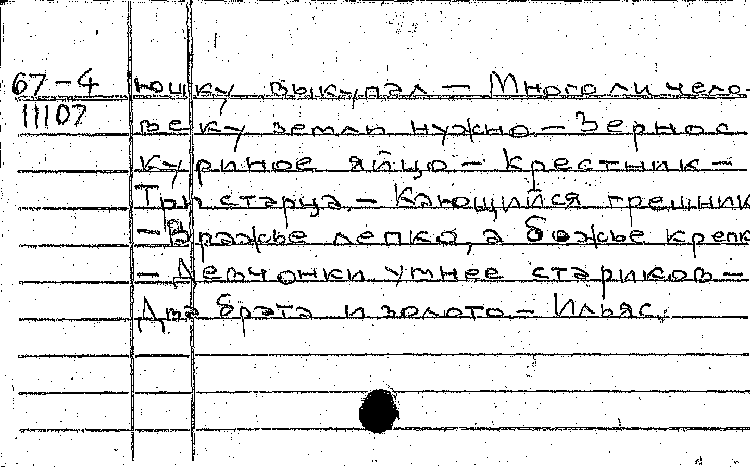 67-4 юшку выкупал - Много ли чело-
11107
веку земли нужно - Зерно с
куриное яйцо - Крестник -
Три старца - Кающийся грешник
- Вражье лепко, а божье крепк
- Девчонки умнее стариков -
Два брата и золото - Ильяс.